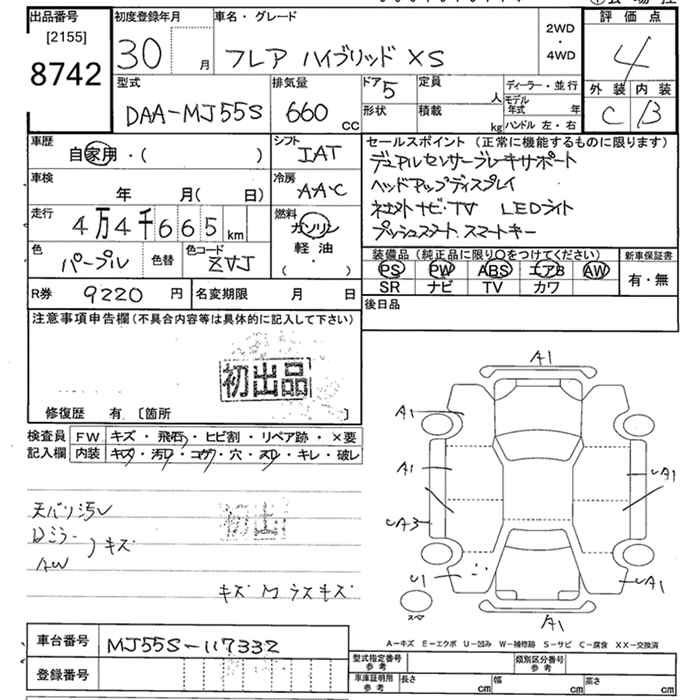 出品番号
[2155]
8742
初度登録年月
30 月
車名・グレード
フレア ハイブリッド XS
2WD
・
4WD
評価点
4
外装 内装
C B
型式
DAA-MJ55S
排気量
660 CC
ドア 5
形状
定員 人
積載 kg
ディーラー・並行
モデル年式 年
ハンドル 左・右
車歴
自家用・( )
シフト
IAT
車検
年 月( 日)
冷房
AAC
走行
4万4千665 km
燃料
ガソリン
軽油
( ・ )
色
パープル
色替
色コード
ZVJ
R券
9220 円
名変期限 月 日
セールスポイント(正常に機能するものに限ります)
デュアルセンサーブレーキサポート
ヘッドアップディスプレイ
ナビ・TV LEDライト
プッシュスタート スマートキー
装備品(純正品に限り〇をつけてください)
PS PW ABS エアB AW
SR ナビ TV カワ
新車保証書
有・無
後日品
注意事項申告欄(不具合内容等は具体的に記入して下さい)
初出品
修復歴 有 〔箇所 〕
検査員
記入欄
FW キズ・飛石・ヒビ割・リペア跡・×要
内装 キズ・汚レ・コゲ・穴・スレ・キレ・破レ
天バリ汚レ
Dミラー
AW
キズ
初出
キズ M ウスキズ
A1
A1
A1
UA1
UA3
U1
UA1
A1
スペ
A-キズ E-エクボ U-凹み W-補修跡 S-サビ C-腐食 XX-交換済
車台番号
MJ55S-117332
登録番号
型式指定番号
参考
類別区分番号
参考
車庫証明用
参考
長さ cm 幅 cm 高さ cm